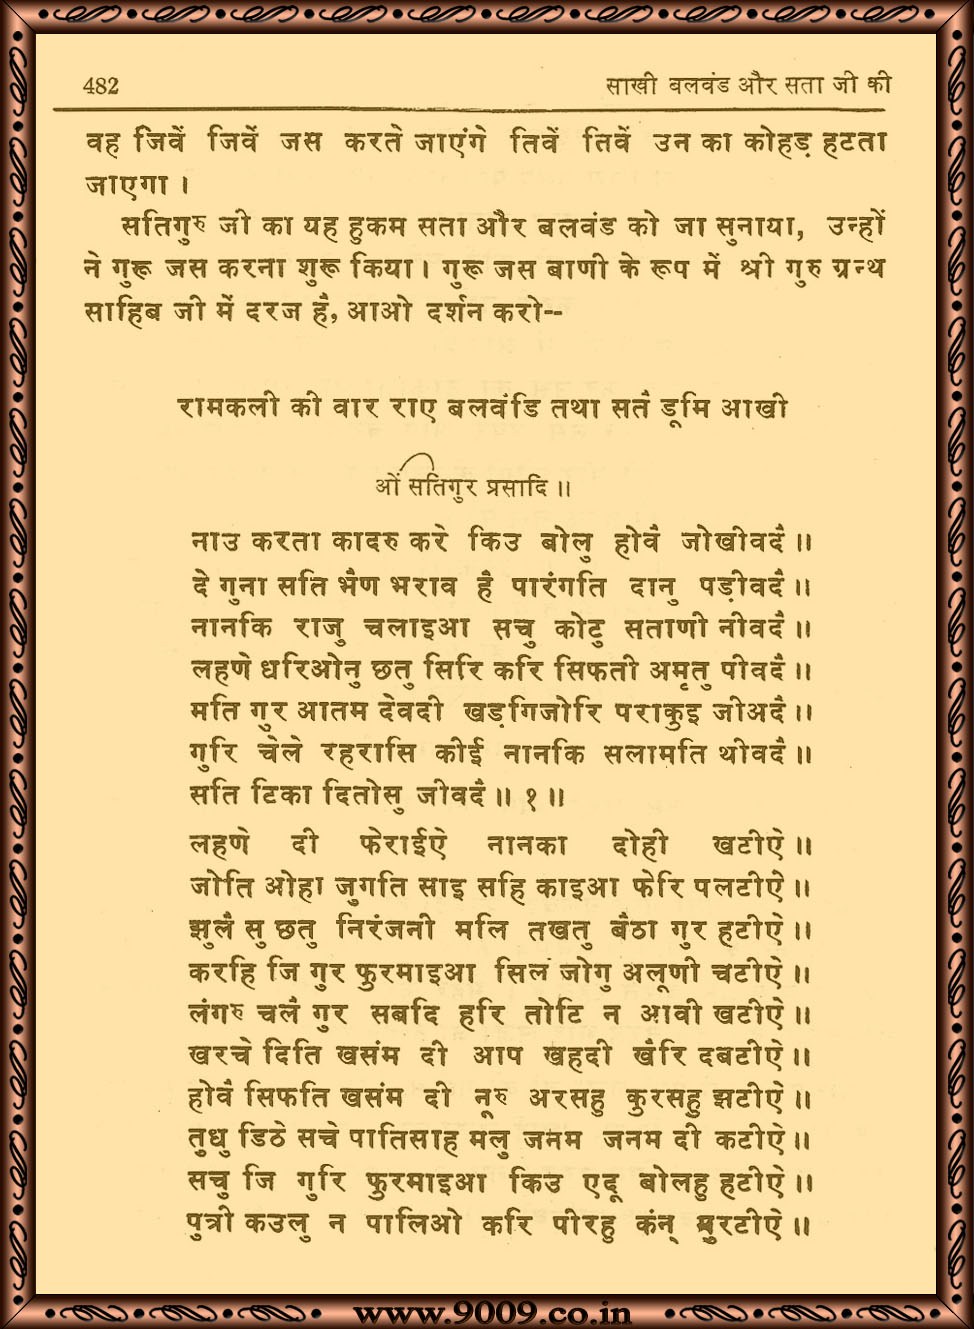 482 साखी बलवंड और सता जी की
वह जिवें जिवें जस करते जाएंगे तिवें तिवें उन का कोहड़ हटता
जाएगा ।
सतिगुरु जी का यह हुकम सता और बलवंड को जा सुनाया, उन्हों
ने गुरू जस करना शुरू किया । गुरू जस बाणी के रूप में श्री गुरु ग्रन्थ
साहिब जी में दरज है, आओ दर्शन करो--
रामकली की वार राए बलवंडि तथा सतै डूमि आखी
ओं सतिगुर प्रसादि ॥
नाउ करता कादरु करे किउ बोलु होवै जोखीवदै ॥
दे गुना सति भैण भराव है पारंगति दानु पड़ीवदै ॥
नानकि राजु चलाइआ सचु कोटु सताणी नीवदै ॥
लहणे धरिओनु छतु सिरि करि सिफती अमृतु पीवदै ॥
मति गुर आतम देवदी खड़गिजोरि पराकुइ जीअदै ॥
गुरि चेले रहरासि कीई नानकि सलामति थीवदै ॥
सति टिका दितोसु जीवदै ॥ १ ॥
लहणे दी फेराईऐ नानका दोही खटीऐ ॥
जोति ओहा जुगति साइ सहि काइआ फेरि पलटीऐ ॥
झुलै सु छतु निरंजनी मलि तखतु बैठा गुर हटीऐ ॥
करहि जि गुर फुरमाइआ सिल जोगु अलूणी चटीऐ ॥
लंगरु चलै गुर सबदि हरि तोटि न आवी खटीऐ ॥
खरचे दिति खसंम दी आप खहदी खैरि दबटीऐ ॥
होवै सिफति खसंम दी नूरु अरसहु कुरसहु झटीऐ ॥
तुधु डिठे सचे पातिसाह मलु जनम जनम दी कटीऐ ॥
सचु जि गुरि फुरमाइआ किउ एदू बोलहु हटीऐ ॥
पुत्री कउलु न पालिओ करि पीरहु कंन् मुरटीऐ ॥
www.9009.co.in